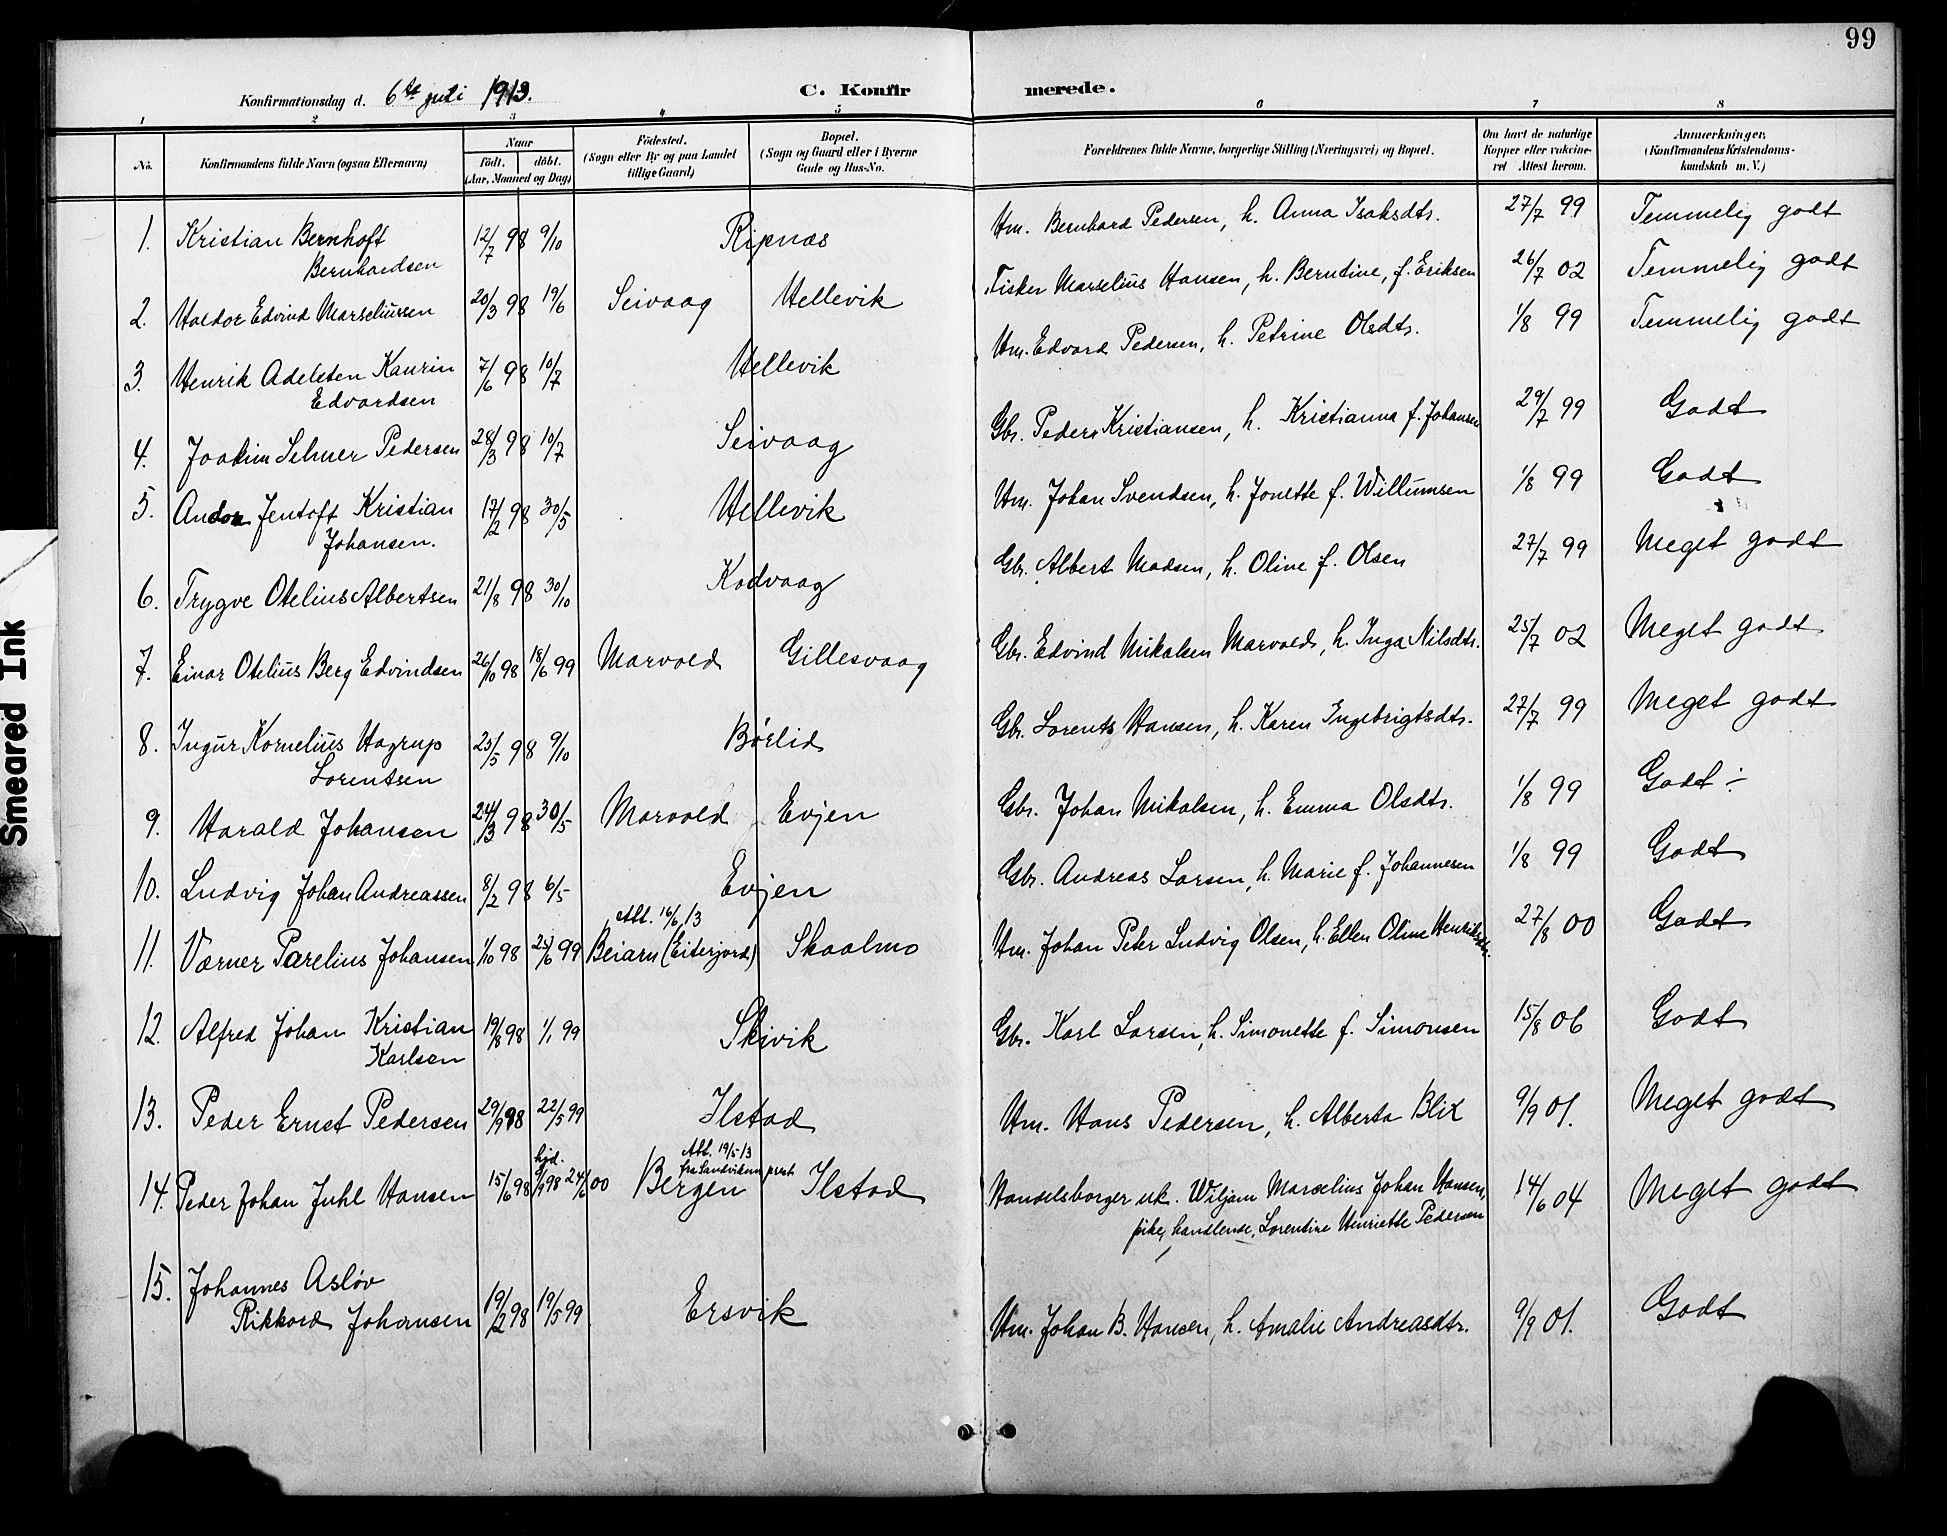 99
Konfirmationsdag d. 6te juli 1913. C. Konfirmerede.
1 2 3 4 5 6 7 8
No. Konfirmandens fulde Navn (ogsaa Efternavn) Naar født. døbt. (Aar, Maaned og Dag) Fødested. (Sogn eller By og paa Landet tillige Gaard) Bopæl. (Sogn og Gaard eller i Byerne Gade og Hus-No. Forældrenes fulde Navne, borgerlige Stilling (Næringsvei) og Bopæl. Om havt de naturlige Kopper eller vakcineret Attest herom. Anmærkninger. (Konfirmandens Kristendomskundskab m. V.)
1. Kristian Bernhoft Bernhardsen 12/7 98 9/10 Ripnas Um. Bernhard Pedersen, h. Anna Isaksdtr. 27/7 99 Temmelig godt
2. Haldor Edvind Marseliussen 20/3 98 19/6 Seivaag Hellevik Fisker Marselius Hansen, h. Berntine, f. Eriksen 26/7 02 Temmelig godt
3. Henrik Adelsten Kaurin Edvardsen 7/6 98 10/7 Hellevik Um. Edvard Pedersen, h. Petrine Olsdtr. 1/8 99 Temmelig godt
4. Joakim Selmer Pedersen 28/3 98 10/7 Seivaag Gbr. Peder Kristiansen, h. Kristianna f. Johansen 29/7 99 Godt
5. Andor Jentoft Kristian Johansen. 17/2 98 30/5 Hellevik Um. Johan Svendsen, h. Jonette f. Willumsen 1/8 99 Godt
6. Trygve Otelius Albertsen 21/8 98 30/10 Kodvaag Gbr. Albert Madsen, h. Oline f. Olsen 27/7 99 Meget godt
7. Einar Otelius Berg Edvindsen 26/10 98 18/6 99 Marvold Gillesvaag Gbr. Edvind Mikalsen Marvold, h. Inga Nilsdtr. 25/7 02 Meget godt
8. Ingur Kornelius Hagrup Lorentsen 25/5 98 9/10 Børlid Gbr. Lorents Hansen, h. Karen Ingebrigtsdtr. 27/7 99 Meget godt
9. Harald Johansen 24/3 98 30/5 Marvold Evjen Gbr. Johan Mikalsen, h. Emma Olsdtr. 1/8 99 Godt ÷
10. Ludvig Johan Andreassen 8/2 98 6/5 Evjen Gbr. Andreas Larsen, h. Marie f. Johannesen 1/8 99 Godt
11. Værner Parelius Johansen 1/10 98 25/6 99 Att. 16/6 13 Beiarn (Eiterjord) Skaalmo Um. Johan Peter Ludvig Olsen, h. Ellen Oline Henriksdtr. 27/8 00 Godt
12. Alfred Johan Kristian Karlsen 19/8 98 1/1 99 Skivik Gbr. Karl Larsen, h. Simonette f. Simonsen 15/8 06 Godt
13. Peder Ernst Pedersen 29/9 98 22/5 99 Ilstad Um. Hans Pedersen, h. Alberta Blix 9/9 01. Meget godt
14. Peder Johan Juhl Hansen 15/6 98 hjd. 9/9 98 24/6 00 Att. 19/5 13 fra Sandvikens prest Bergen Ilstad Handelsborger uk. Wiljam Marselius Johan Hansen, pike, handlende, Lorentine Henriette Pedersen 14/6 04 Meget godt
15. Johannes Asløv Rikkard Johansen 19/2 98 19/5 99 Ersvik Um. Johan B. Hansen, h. Amalie Andreasdtr. 9/9 01. Godt
Smeared Ink